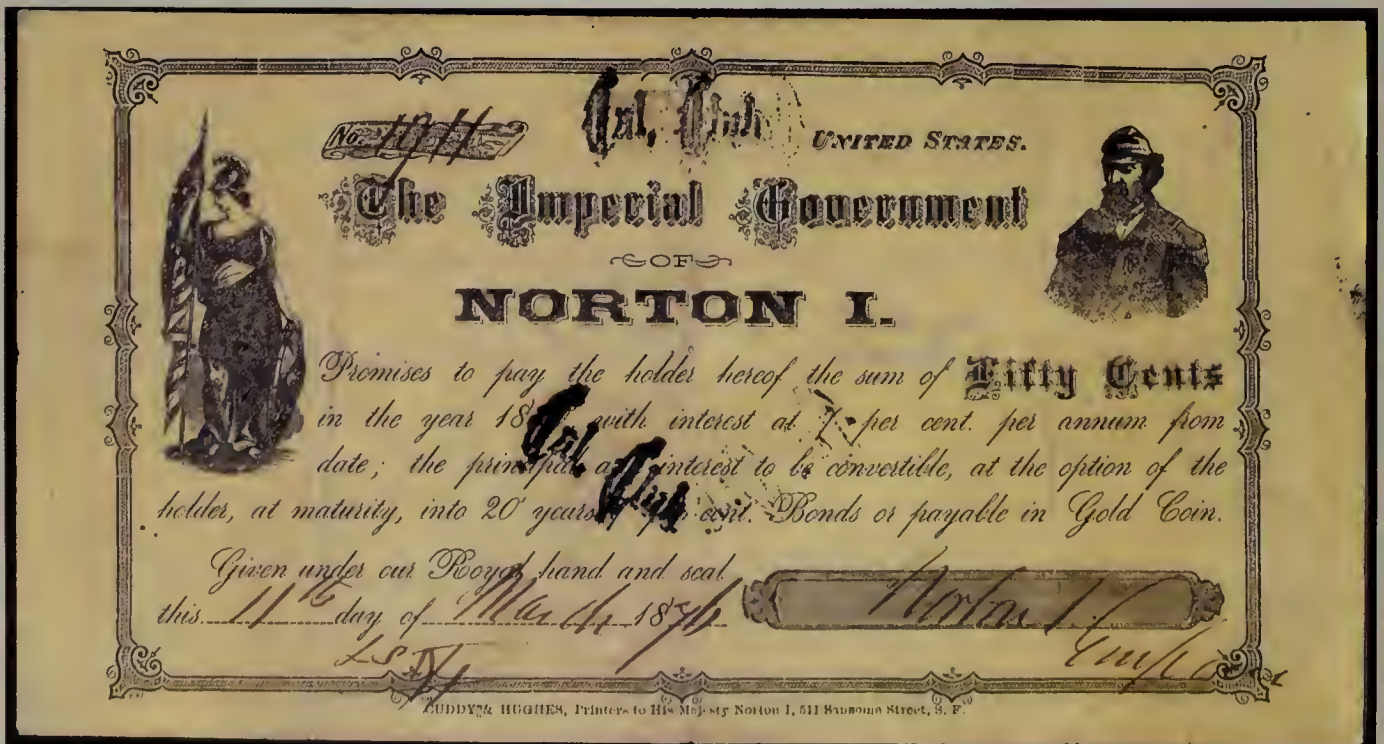 No. 1911
UNITED STATES.
The Imperial Government
OF
NORTON I.
Promises to pay the holder hereof the sum of Fifty Cents
in the year 18 with interest at 7 per cent. per annum from
date; the principal and interest to be convertible, at the option of the
holder, at maturity, into 20 years cent. Bonds or payable in Gold Coin.
Given under our Royal hand and seal
this 11th day of March 1876
Norton I.
Emperor
CUDDY & HUGHES, Printers to His Majesty Norton I, 511 Sansome Street, S. F.